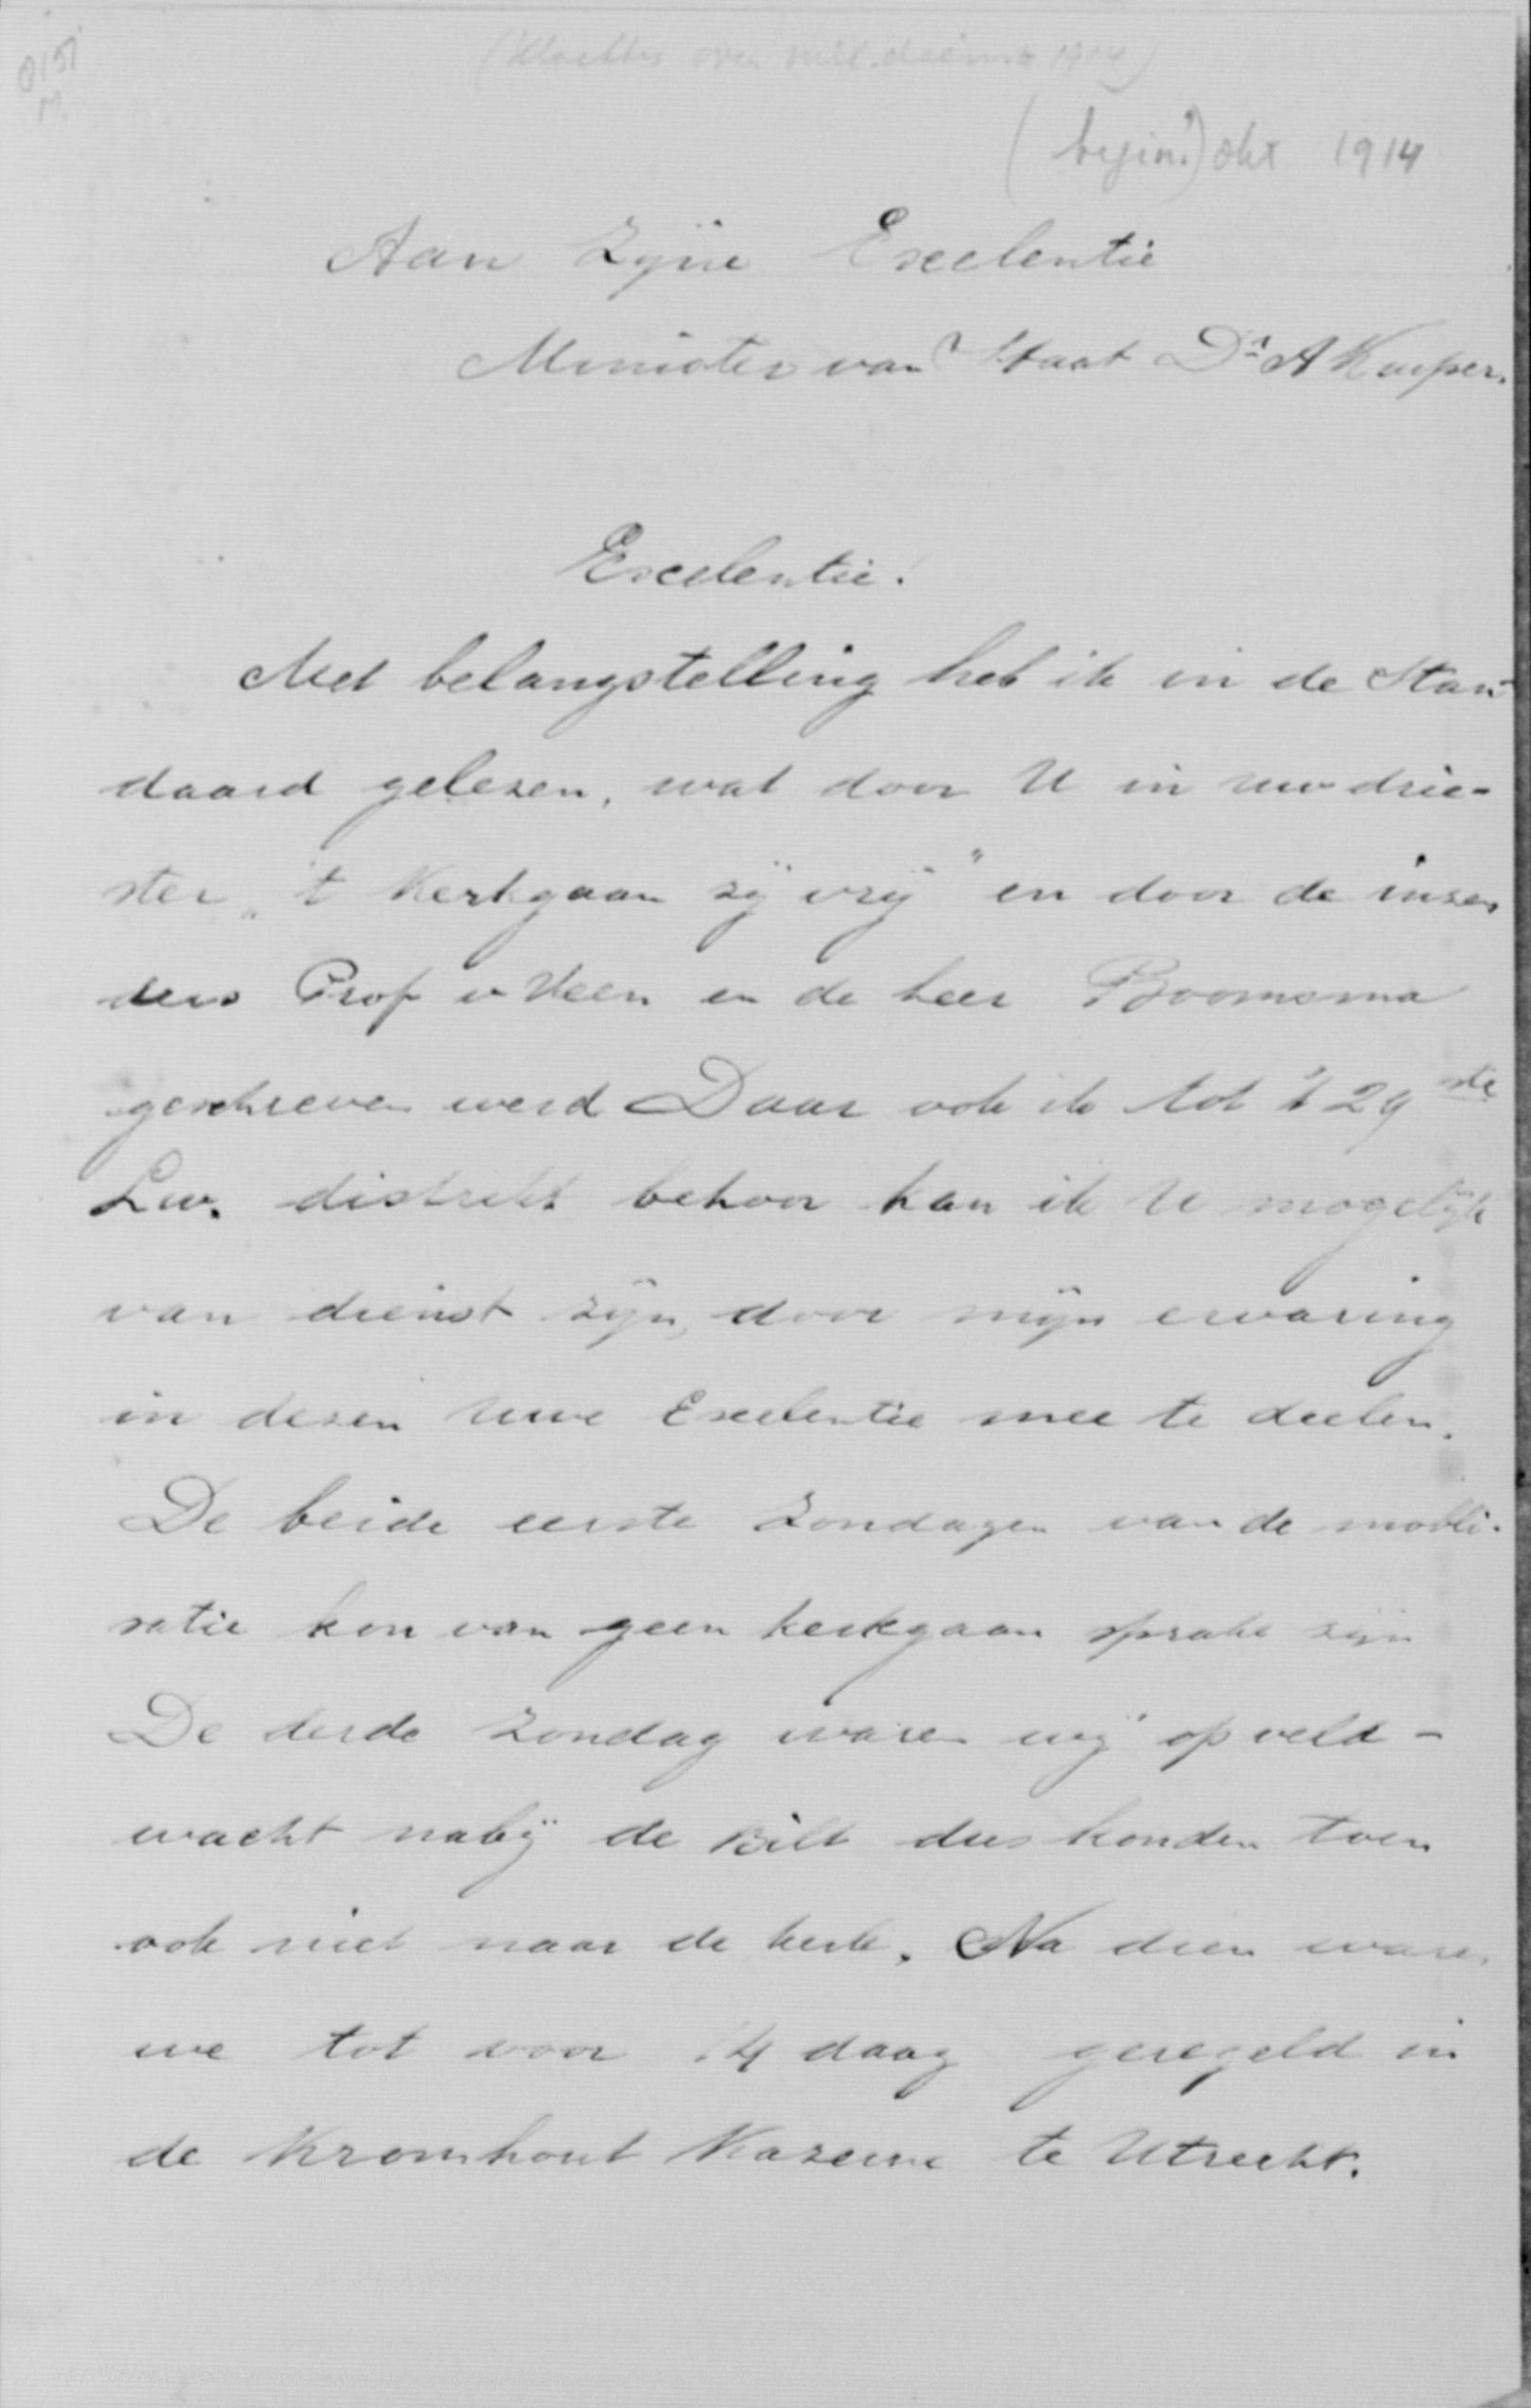 (Klachten over mil. dienst 1914)
8151
M.
(begin?) okt 1914
Aan Zijne Excelentie
Minister van Staat Dr. A Kuyper.
Excelentie!
Met belangstelling heb ik in de Stan-
daard gelezen, wat door U in uw drie-
ster „'t Kerkgaan zij vrij" en door de inzen
ders Prof v Veen en de heer Boomsma
geschreven werd Daar ook ik tot 't 29ste
Lw. distrikt behoor kan ik U mogelijk
van dienst zijn, door mijn ervaring
in dezen Uwe Excelentie mee te deelen.
De beide eerste Zondagen van de mobli-
satie kon van geen kerkgaan sprake zijn
De derde Zondag waren wij op veld-
wacht nabij de Bilt dus konden toen
ook niet naar de kerk. Na dien waren
we tot voor 14 daag geregeld in
de Kromhout Kazerne te Utrecht.